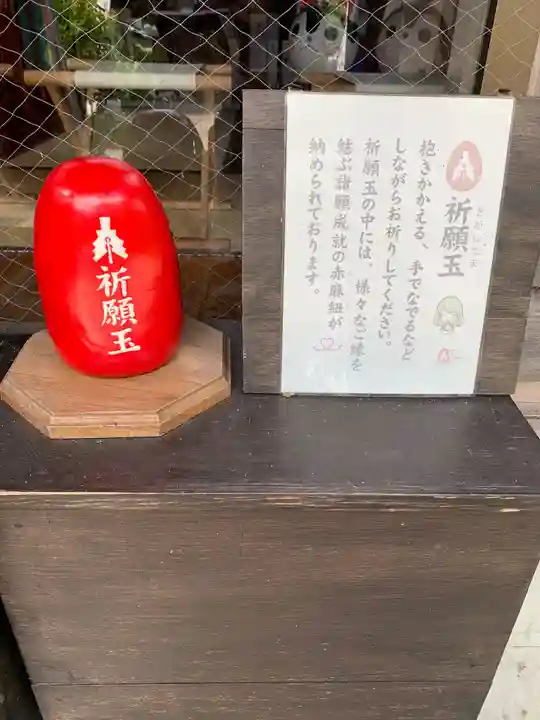 祈願玉
祈願玉
きがんだま
抱きかかえる、手でなでるなど
しながらお祈りしてください。
祈願玉の中には、様々なご縁を
結ぶ諸願成就の赤麻紐が
納められております。